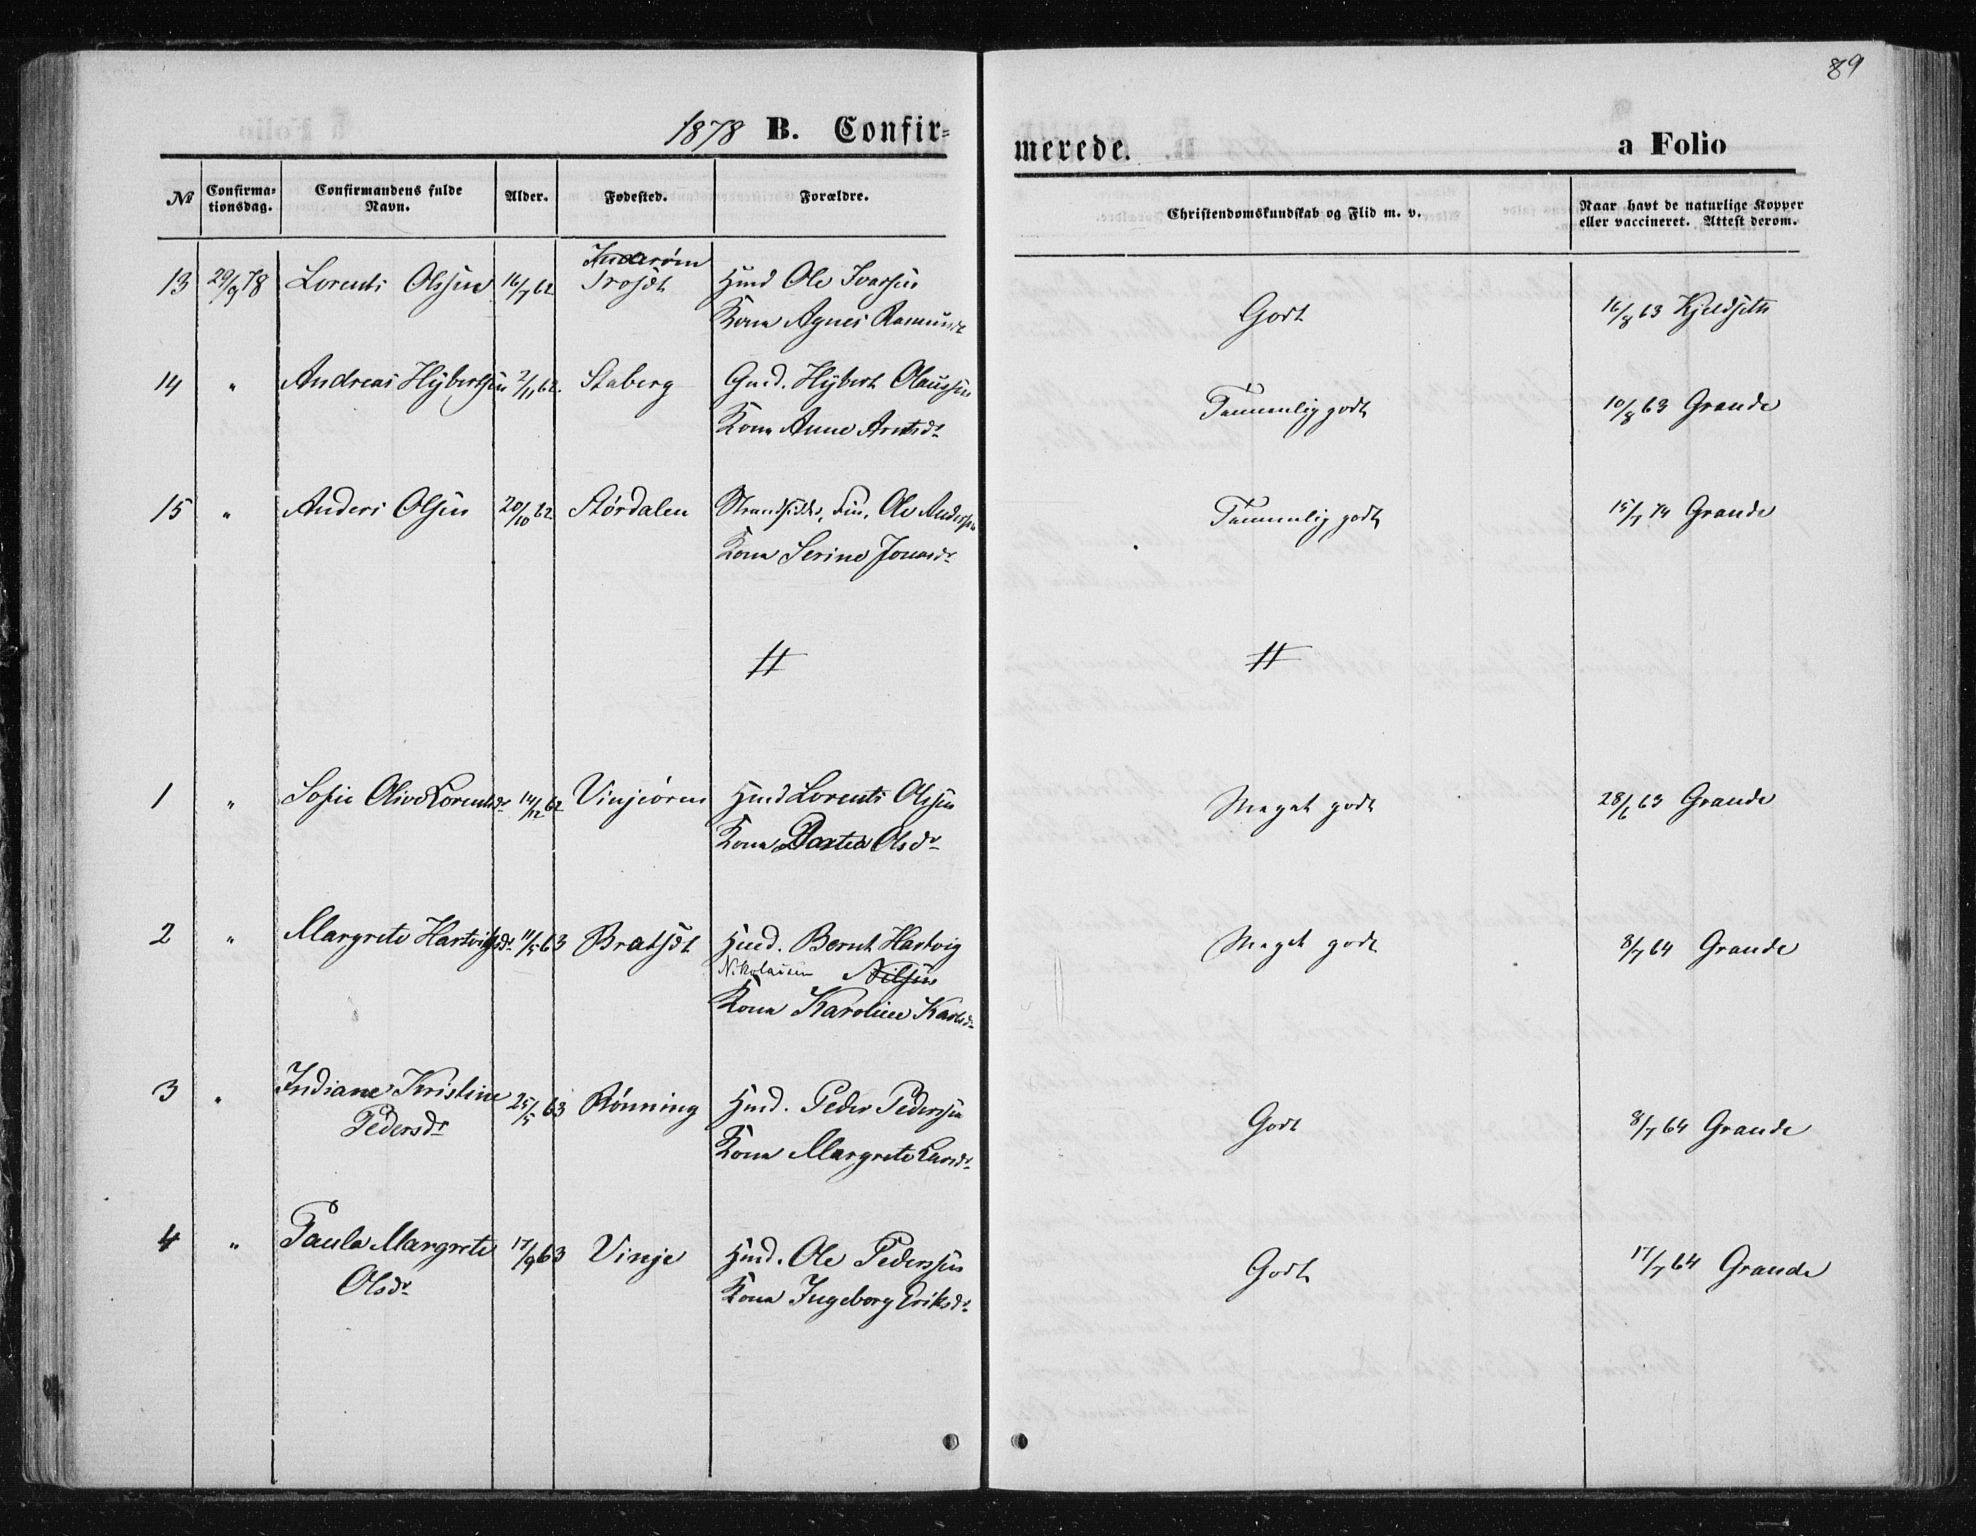 89
1878 B. Confir=
merede.
a Folio
№
Confirma=
tionsdag.
Confirmandens fulde
Navn.
Alder.
Fødested.
Forældre.
Christendomskundskab og Flid m. v.
Naar havt de naturlige Kopper
eller vaccineret. Attest derom.
Inderøen
13 29/9 78 Lorents Olsen 16/7 62 Hmd Ole Ivarsen
Kona Agnes Rasmusdr
Godt
16/8 63 Kjeldseth
14 " Andreas Hybertsen 2/11 62. Staberg Gmd. Hybert Olaussen
Kona Anne Arntsdr
Temmelig godt
10/8 63 Grande
15 " Anders Olsen 20/10 62 Størdalen Strandsidder, Fin, Ole Andersen
Kona Serine Jonasdr
Temmelig godt
15/7 74 Grande
#
#
1 " Sofie Olive Lorentsdr 14/12 62 Vinjeøren Hmd Lorents Olsen
Kona Olsdr
Meget godt
28/6 63 Grande
2 " Margrete Hartvigsdr 11/5 63 Bratset Hmd. Bernt Hartvig
Nikolaisen Nilsen
Kona Karoline Karlsdr
Meget godt
8/7 64 Grande
3 " Indiane Kristine 25/5 63 Rønning Hmd. Peder Pedersen
Pedersdr
Kona Margrete Larsdr
Godt
8/7 64 Grande
4 " Paula Margrete 17/9 63 Vinje Hmd. Ole Pedersen
Olsdr
Kona Ingeborg Eriksdr
Godt
17/7 64 Grande